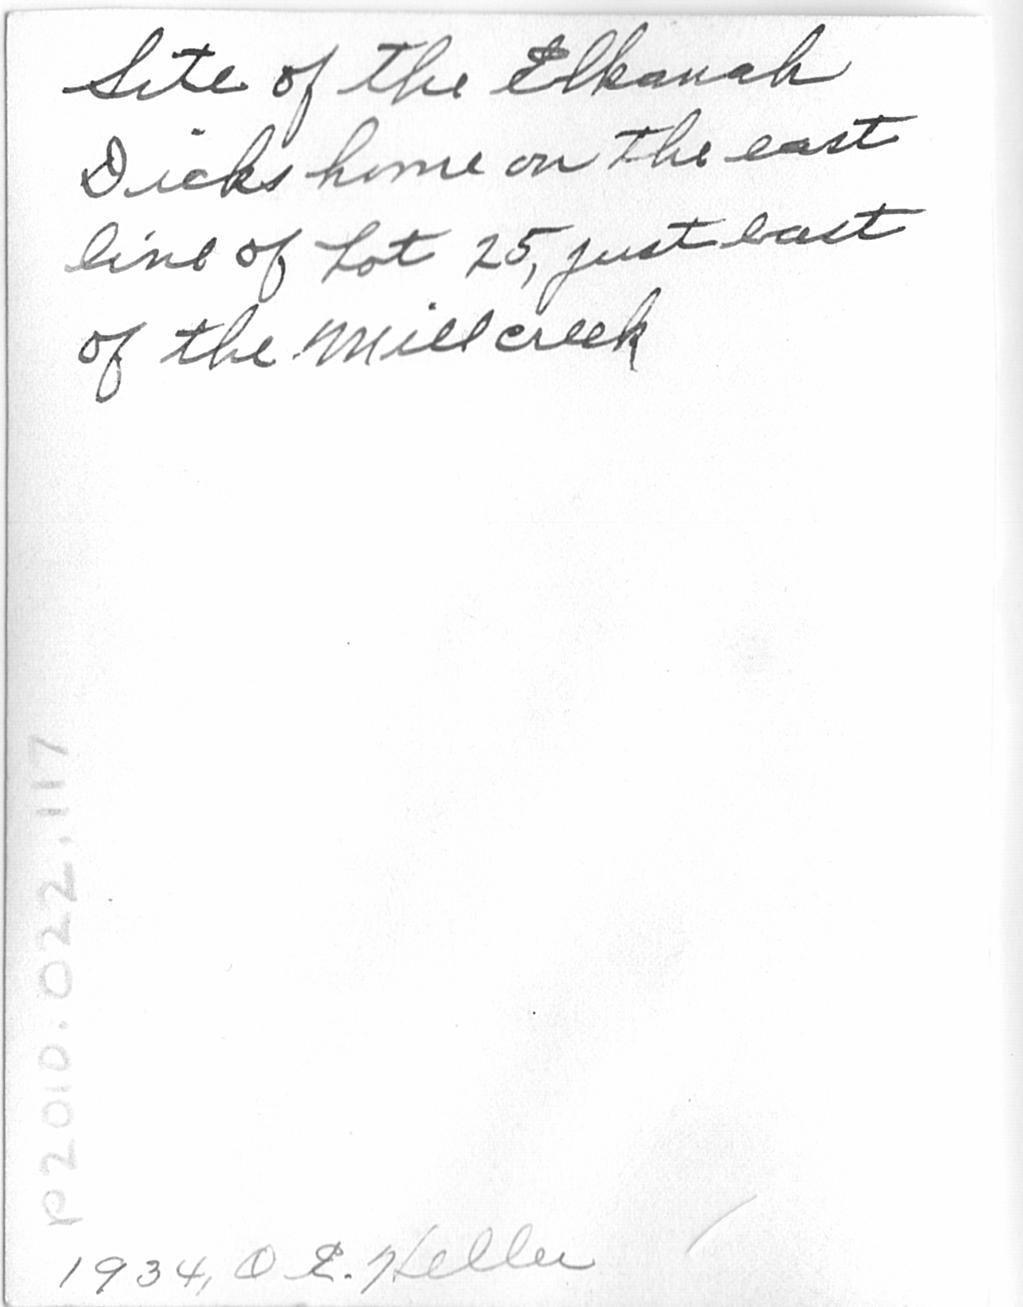 Site of the Elkanah
Dicks home on the east
line of Lot 25, just east
of the Mill creek
P2010.022.117
1934, O E. Heller